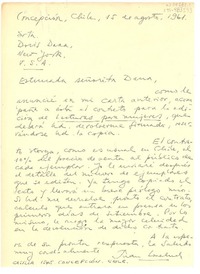 Concepción, Chile, 15 de agosto, 1961.
Srta.
Doris Dana,
New York,
U.S.A.
Estimada señorita Dana,
como le
anuncié en mi carta anterior, acom-
paño a ésta el contrato para la edi-
ción de Lecturas para mujeres, que
deberá Ud. devolverme firmado,
dose Ud. la copia.
El contra-
to otorga, como es usual en Chile, el
10% del precio de venta al público de
cada ejemplar.
detalle del número de ejemplares
que se editen. Ya tengo copiado el
texto y llevará un breve prólogo mío.
Si Ud. me devuelve pronto el contrato,
calculo que entrará en prensa en los
primeros días de setiembre. Por lo
mismo, le ruego la mayor celeridad
en la devolución de dicho contrato.
A la espe-
ra de su pronta respuesta, la saluda
muy cordialmente
Juan